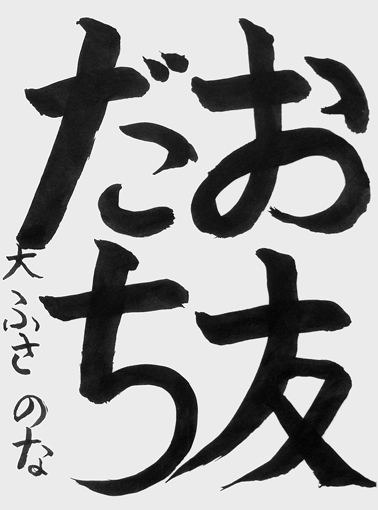 お友
だち
大ふさ のな